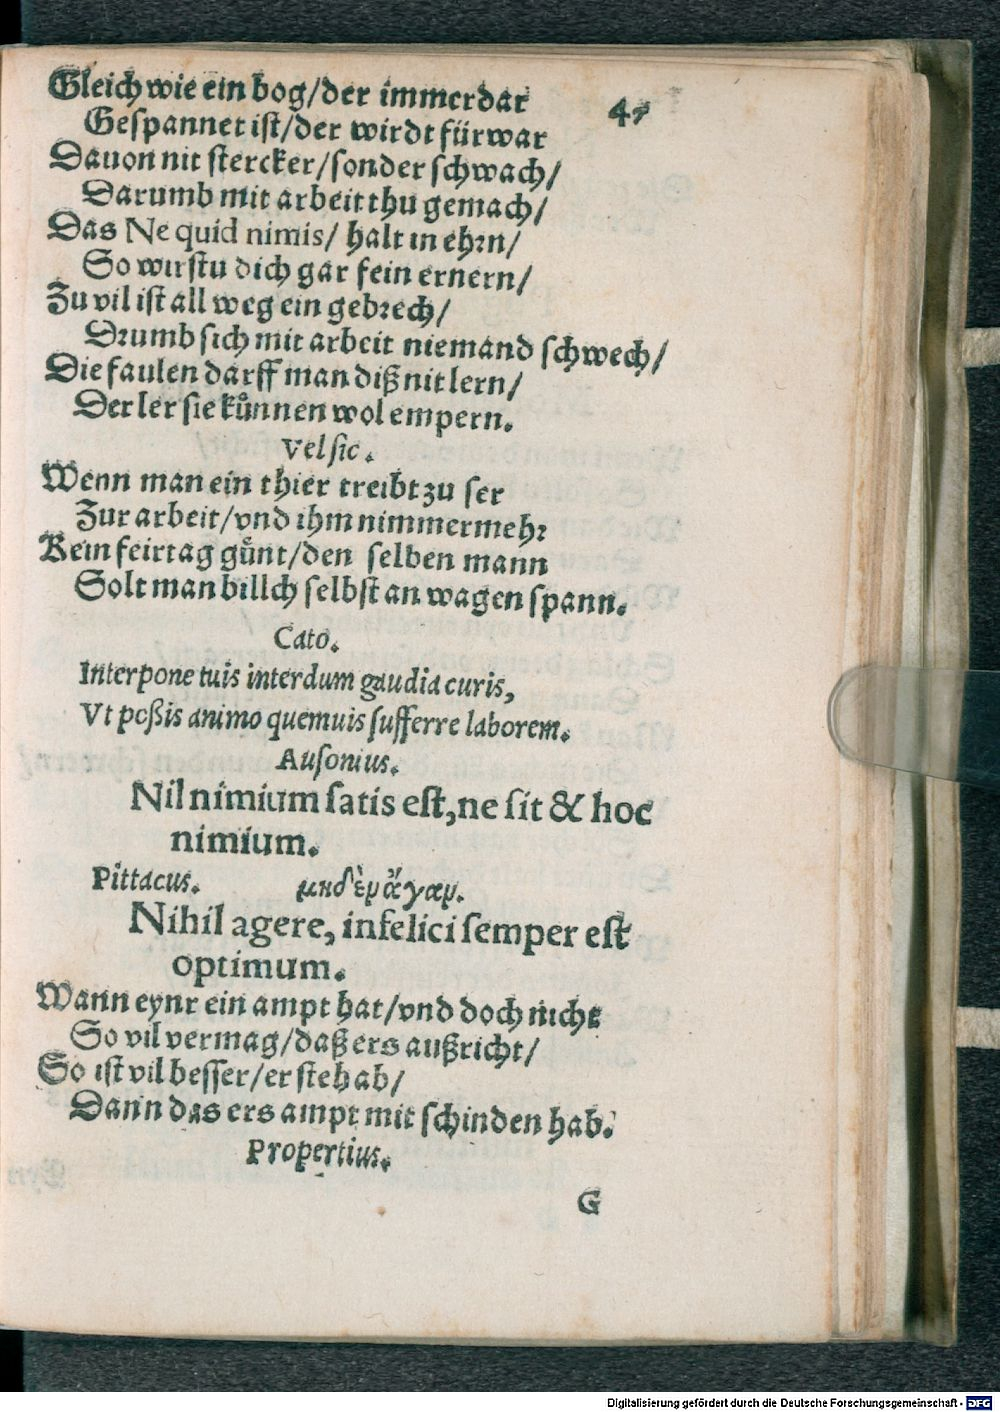 Gleich wie ein bog/der immerdar
47
Gespannet ist/der wirdt fürwar
Dauon nit stercker/sonder schwach/
Darumb mit arbeit thu gemach/
Das Ne quid nimis/ halt in ehrn/
So wirstu dich gar fein ernern/
Zu vil ist all weg ein gebrech/
Drumb sich mit arbeit niemand schwech/
Die faulen darff man diß nit lern/
Der ler sie kůnnen wol empern.
Vel sic.
Wenn man ein thier treibt zu ser
Zur arbeit/vnd ihm nimmermehr
Kein feirtag gůnt/den selben mann
Solt man billch selbst an wagen spann.
Cato.
Interpone tuis interdum gaudia curis,
Vt poßis animo quemuis sufferre laborem.
Ausonius.
Nil nimium satis est, ne sit & hoc
nimium.
Pittacus. μηδὲν ἄγαν.
Nihil agere, infelici semper est
optimum.
Wann eynr ein ampt hat/vnd doch nicht
So vil vermag/daß ers außricht/
So ist vil besser/er steh ab/
Dann das ers ampt mit schinden hab.
Propertius.
G
Digitalisierung gefördert durch die Deutsche Forschungsgemeinschaft - DFG